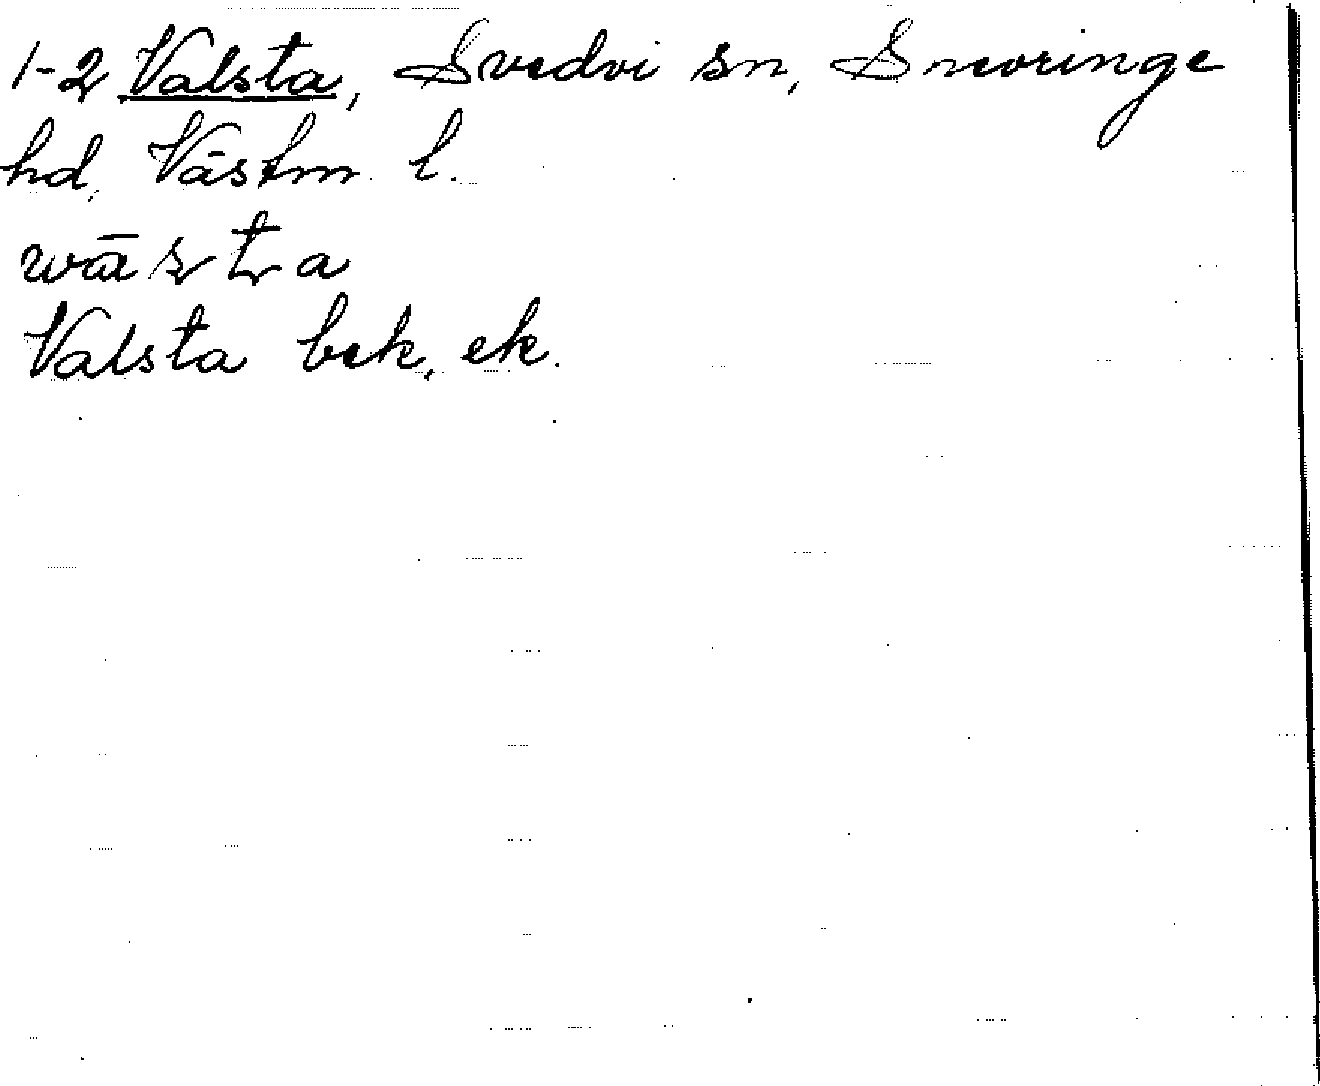 1-2 Valsta, Svedvi sn, Snevringe
hd, Västm. l.
Valsta bek, ek.